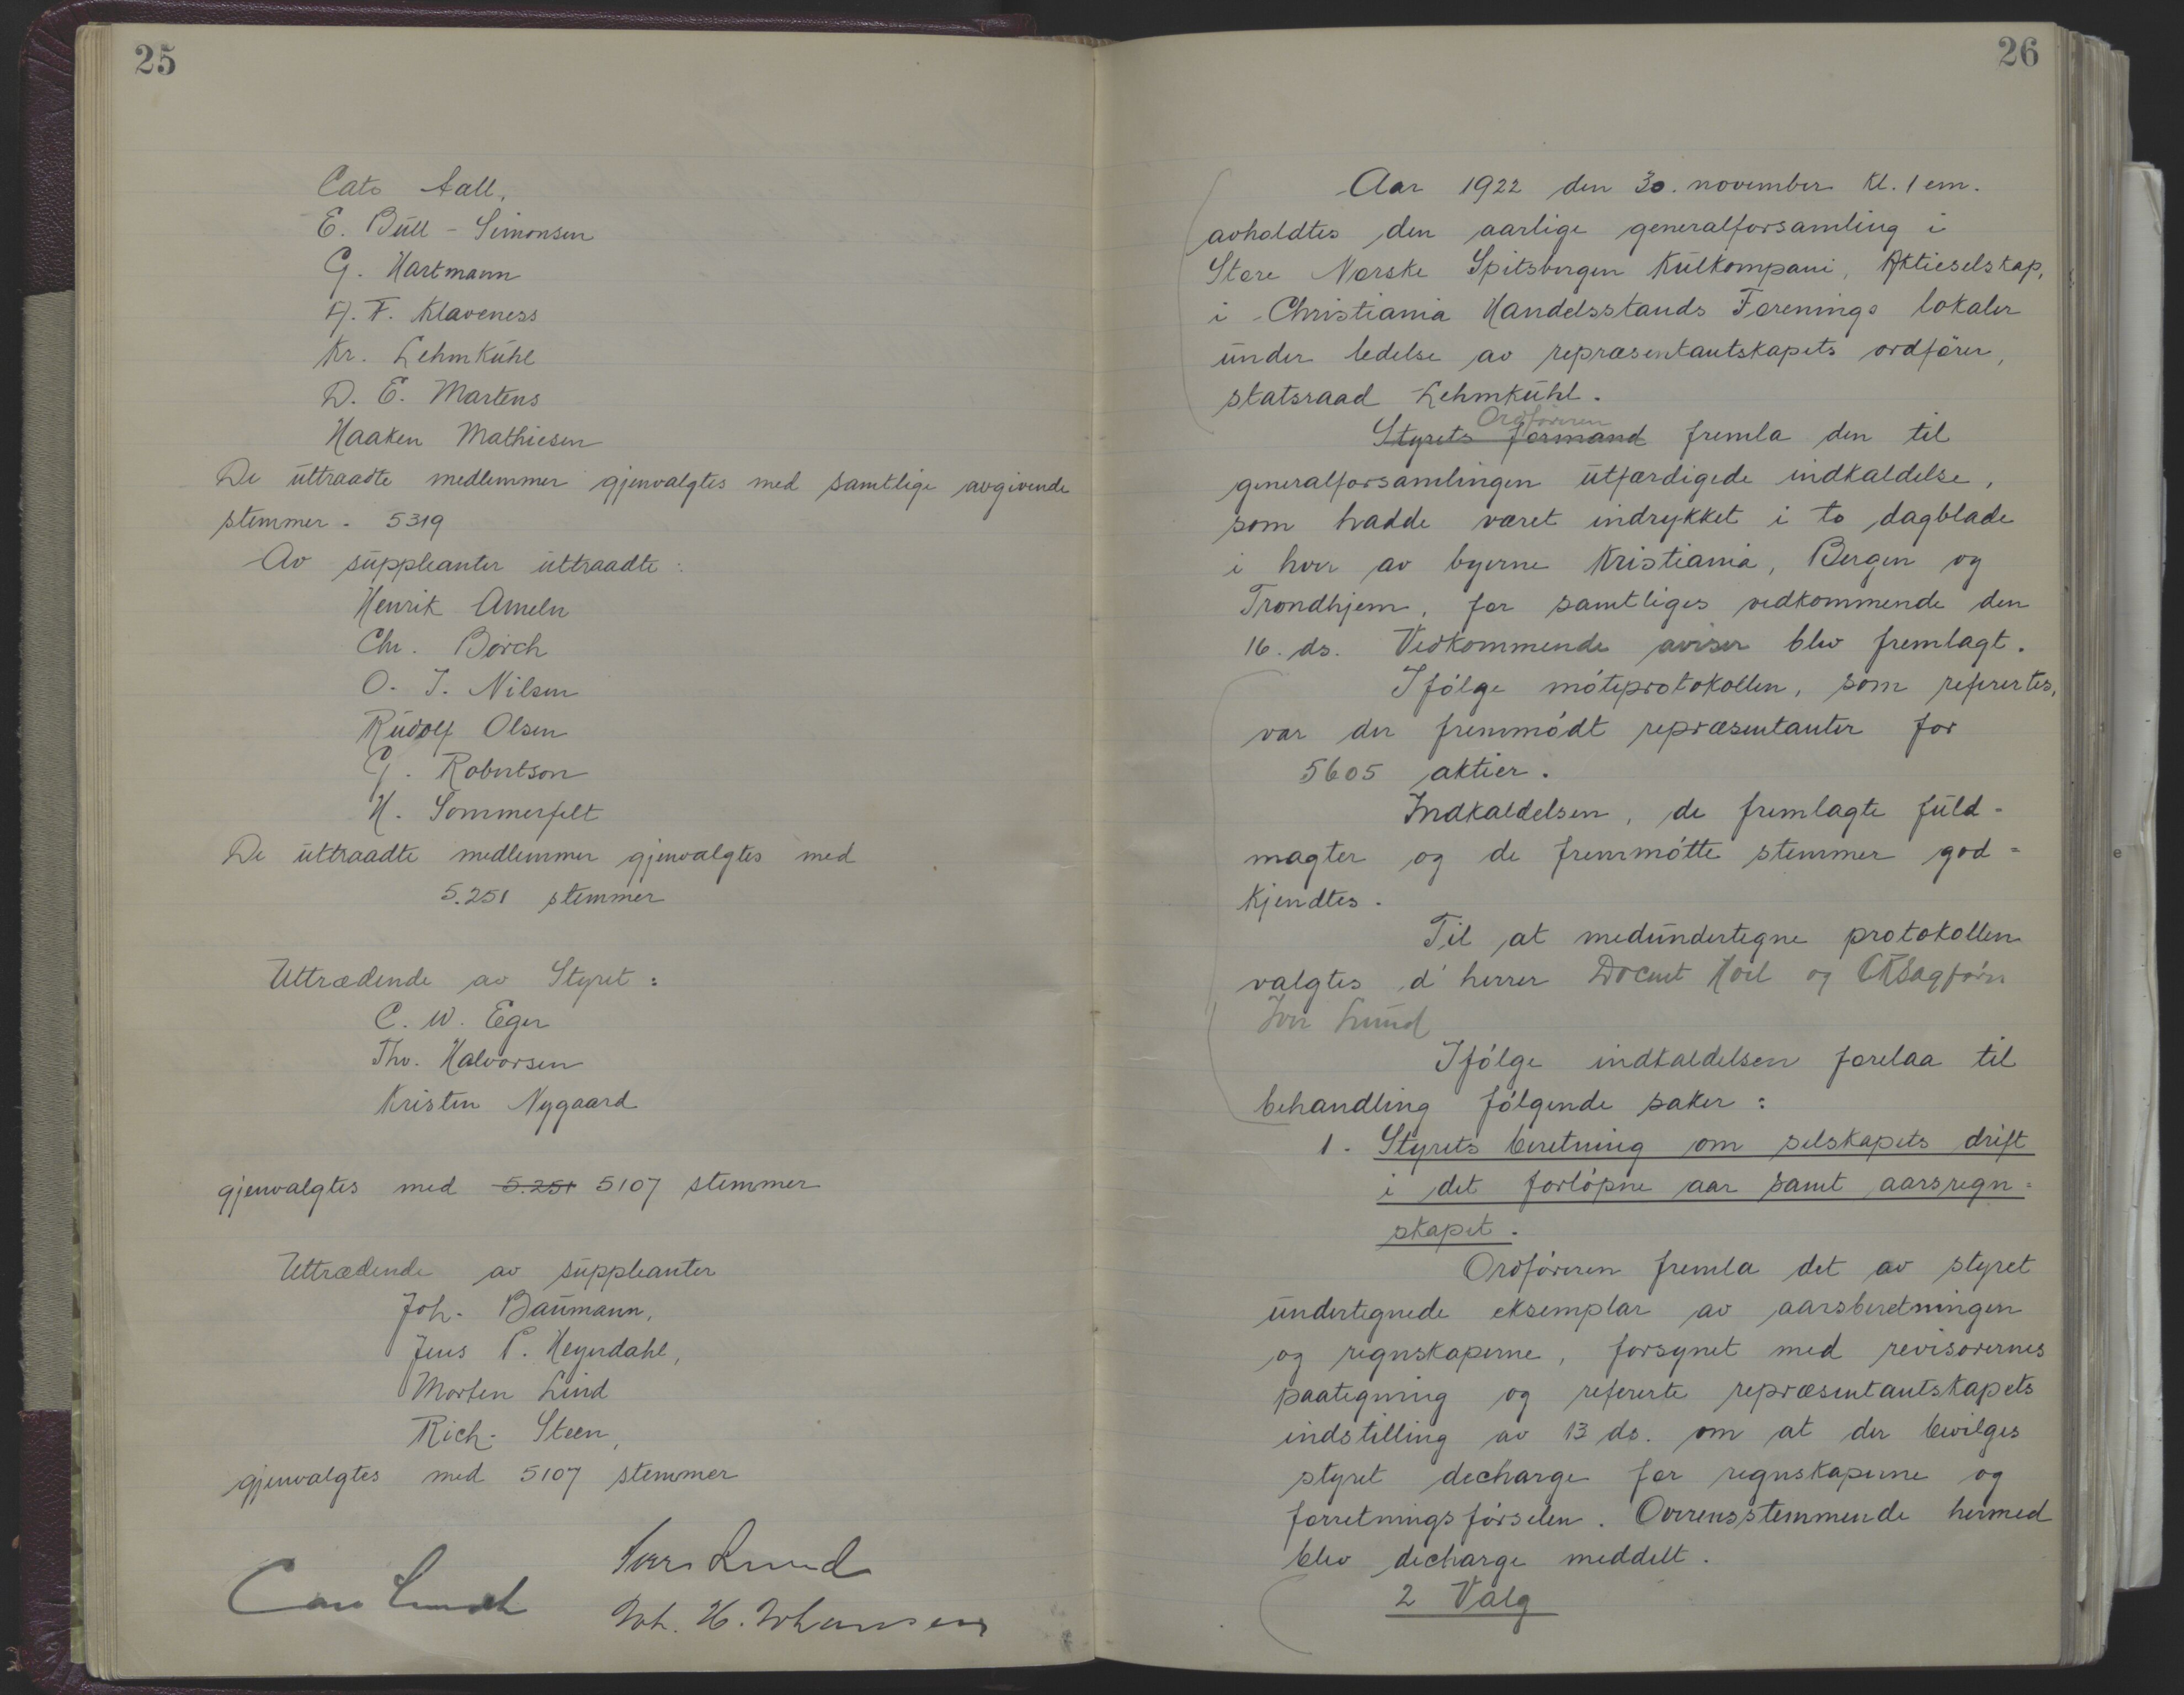 25
Cato Aall,
E. Bull - Simonsen
G. Hartmann
A. F. Klaveness
Kr. Lehmkuhl
D. E. Martens
Haaken Mathiesen
De uttraadte medlemmer gjenvalgtes med samtlige avgivende
stemmer. 5319
Av suppleanter uttraadte:
Henrik Ameln
Chr. Borch
O. J. Nilsen
Rudolf Olsen
G. Robertson
H. Sommerfelt
De uttraadte medlemmer gjenvalgtes med
5.251 stemmer
Uttrædende av Styret:
C. W. Eger
Thv. Halvorsen
Kristen Nygaard
gjenvalgtes med 5.251 5107 stemmer
Uttrædende av suppleanter
Joh. Baumann,
Jens P. Heyerdahl,
Morten Lind
Rich. Steen,
gjenvalgtes med 5107 stemmer
Iver Lund
Joh. H. Johansen
26
Aar 1922 den 30. november kl. 1 em.
avholdtes den aarlige generalforsamling i
Store Norske Spitsbergen Kulkompani, Aktieselskap,
i Christiania Handelsstands Forenings lokaler
under ledelse av repræsentantskapets ordfører,
statsraad Lehmkuhl.
Ordføreren
Styrets formand fremla den til
generalforsamlingen utfærdigede indkaldelse,
som hadde været indrykket i to dagblade
i hver av byerne Kristiania, Bergen og
Trondhjem, for samtliges vedkommende den
16. ds. Vedkommende aviser blev fremlagt.
Ifølge møteprotokollen, som refertes,
var der fremmødt repræsentanter for
5605 aktier.
Indkaldelsen, de fremlagte fuld-
magter og de fremmøtte stemmer god=
kjendtes.
Til at medundertegne protokollen
valgtes d'herrer Docent Hoel og ORSagfører
Iver Lund
Ifølge indkaldelsen forelaa til
behandling følgende saker:
1. Styrets beretning om selskapets drift
i det forløpne aar samt aarsregn=
skapet.
Ordføreren fremla det av styret
undertegnede eksemplar av aarsberetningen
og regnskaperne, forsynet med revisorernes
paategning og refererte repræsentantskapets
indstilling av 13 ds. om at der bevilges
styret decharge for regnskaperne og
forretningsførselen. Overensstemmende hermed
blev decharge meddelt.
2 Valg